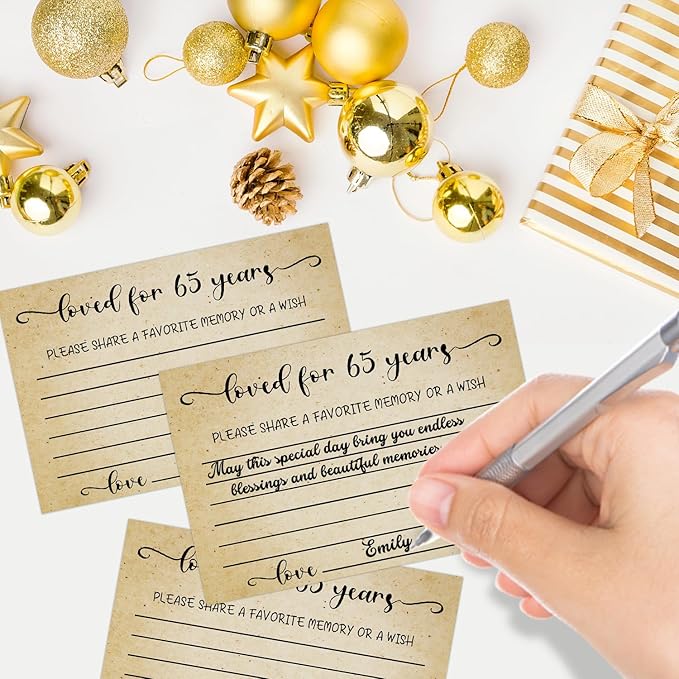 loved for 65 years
PLEASE SHARE A FAVORITE MEMORY OR A WISH
love
loved for 65 years
PLEASE SHARE A FAVORITE MEMORY OR A WISH
May this special day bring you endless
blessings and beautiful memories
Emily
love
loved for 65 years
PLEASE SHARE A FAVORITE MEMORY OR A WISH